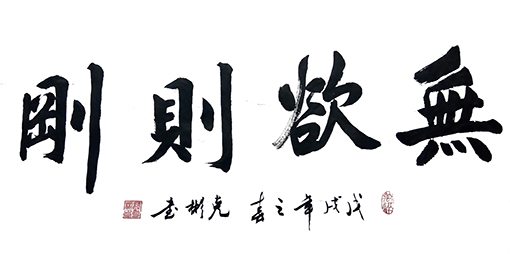 無欲則剛
戊戌年之春 克彬書